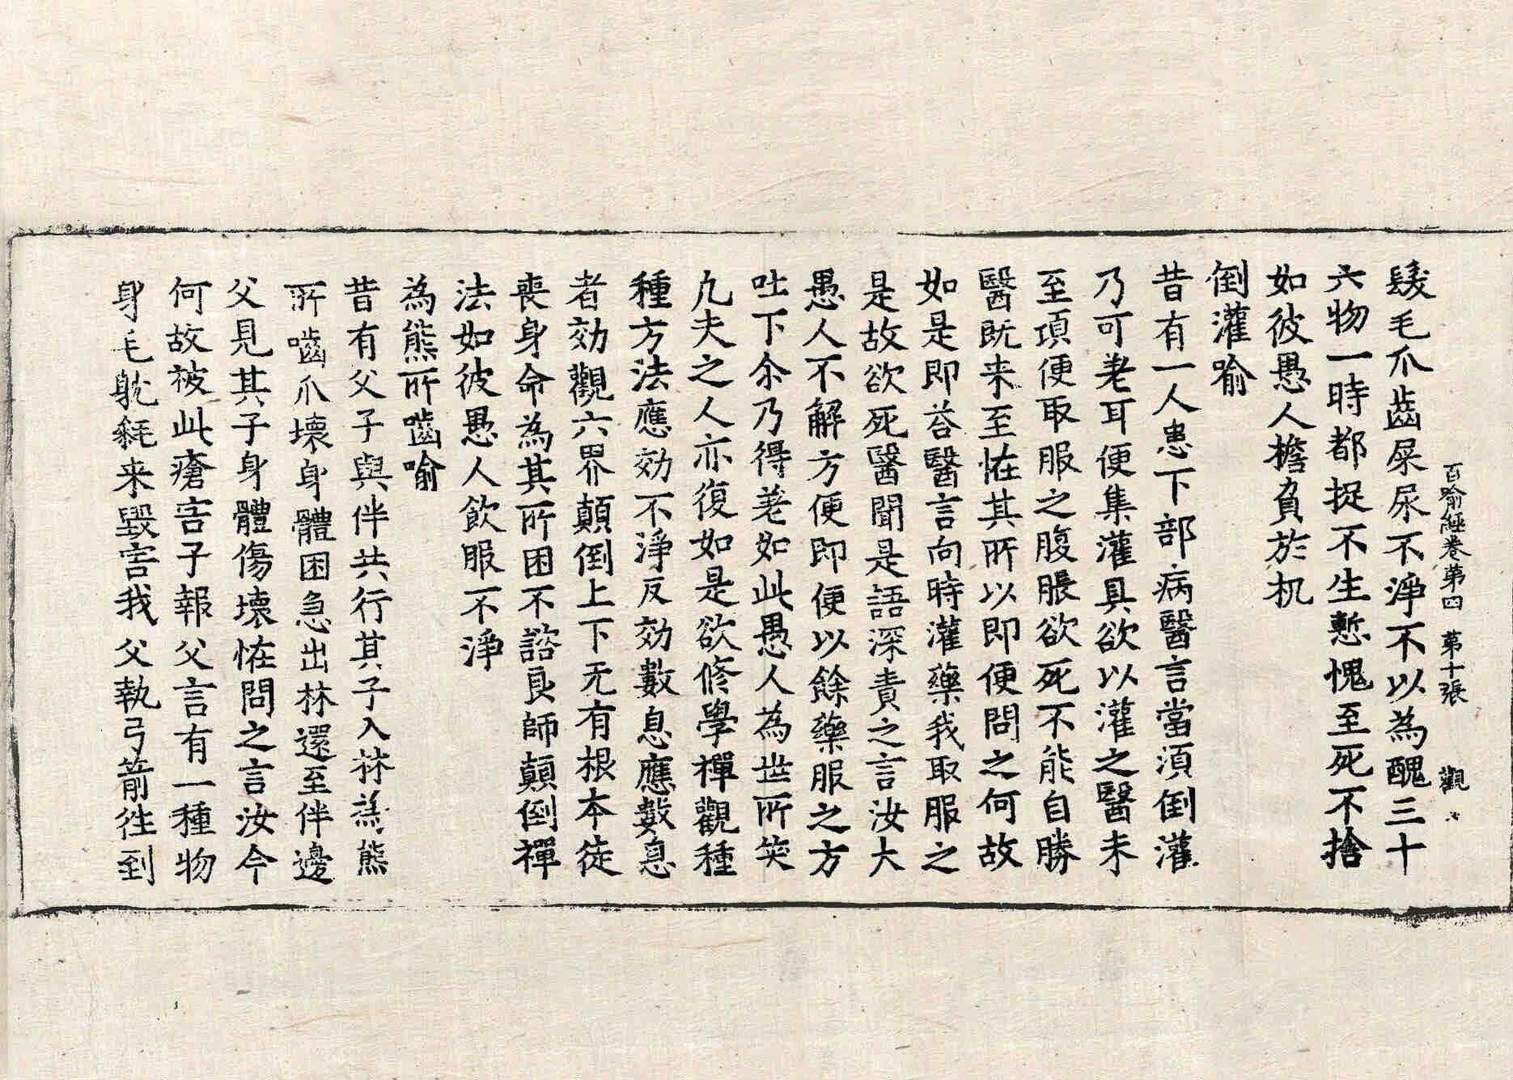 百喻經卷第四　第十張　觀
髮毛爪齒屎尿不淨不以為醜三十
六物一時都捉不生慙愧至死不捨
如彼愚人檐負於机
倒灌喻
昔有一人患下部病醫言當須倒灌
乃可差耳便集灌具欲以灌之醫未
至頃便取服之腹脹欲死不能自勝
醫既来至恠其所以即便問之何故
如是即荅醫言向時灌藥我取服之
是故欲死醫聞是語深責之言汝大
愚人不解方便即便以餘藥服之方
吐下尒乃得差如此愚人為世所笑
凡夫之人亦復如是欲修學禪觀種
種方法應効不淨反効數息應數息
者効觀六界顛倒上下无有根本徒
喪身命為其所困不諮良師顛倒禪
法如彼愚人飲服不淨
為熊所嚙喻
昔有父子與伴共行其子入林為熊
所嚙爪壞身體困急出林還至伴邊
父見其子身體傷壞恠問之言汝今
何故被此瘡害子報父言有一種物
身毛躭毿来毀害我父執弓箭往到